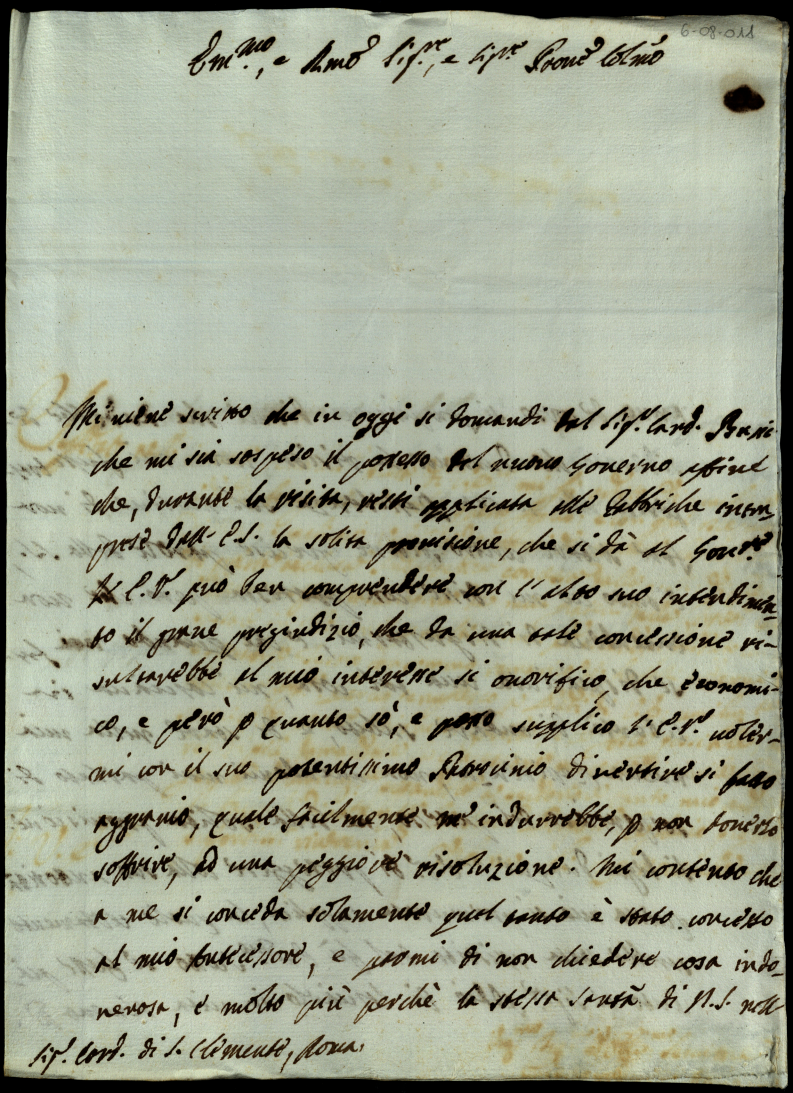 6-08-011
Em.mo, e Rmo Sig.re, e Sig.re Prone Colmo
Mi viene scritto che in oggi si domandi dal Sig.r Card.
che mi sia sospeso il possesso del nuovo Governo affine
che, durante la visita, resti applicata alle fabbriche intra-
prese dall'E.S. la solita provisione, che si dà al Gov.re
L'E.V. può ben comprendere con l'alto suo intendimen-
to il grave pregiudizio, che da una tale concessione ri-
sultarebbe al mio interesse si onorifico, che economi-
co, e però p quanto sò, e posso supplico l'E.V. voler-
mi con il suo potentissimo Patrocinio divertire si fatto
aggravio, quale facilmente m'indurrebbe, p non doverlo
soffrire, ad una peggiore risoluzione. Mi contento che
a me si conceda solamente quel tanto è stato concesso
al mio Antecessore, e parmi di non chiedere cosa indo-
verosa, e molto più perchè la stessa Santà di N.S. nell
Sig.r Card. di S. Clemente, Roma.